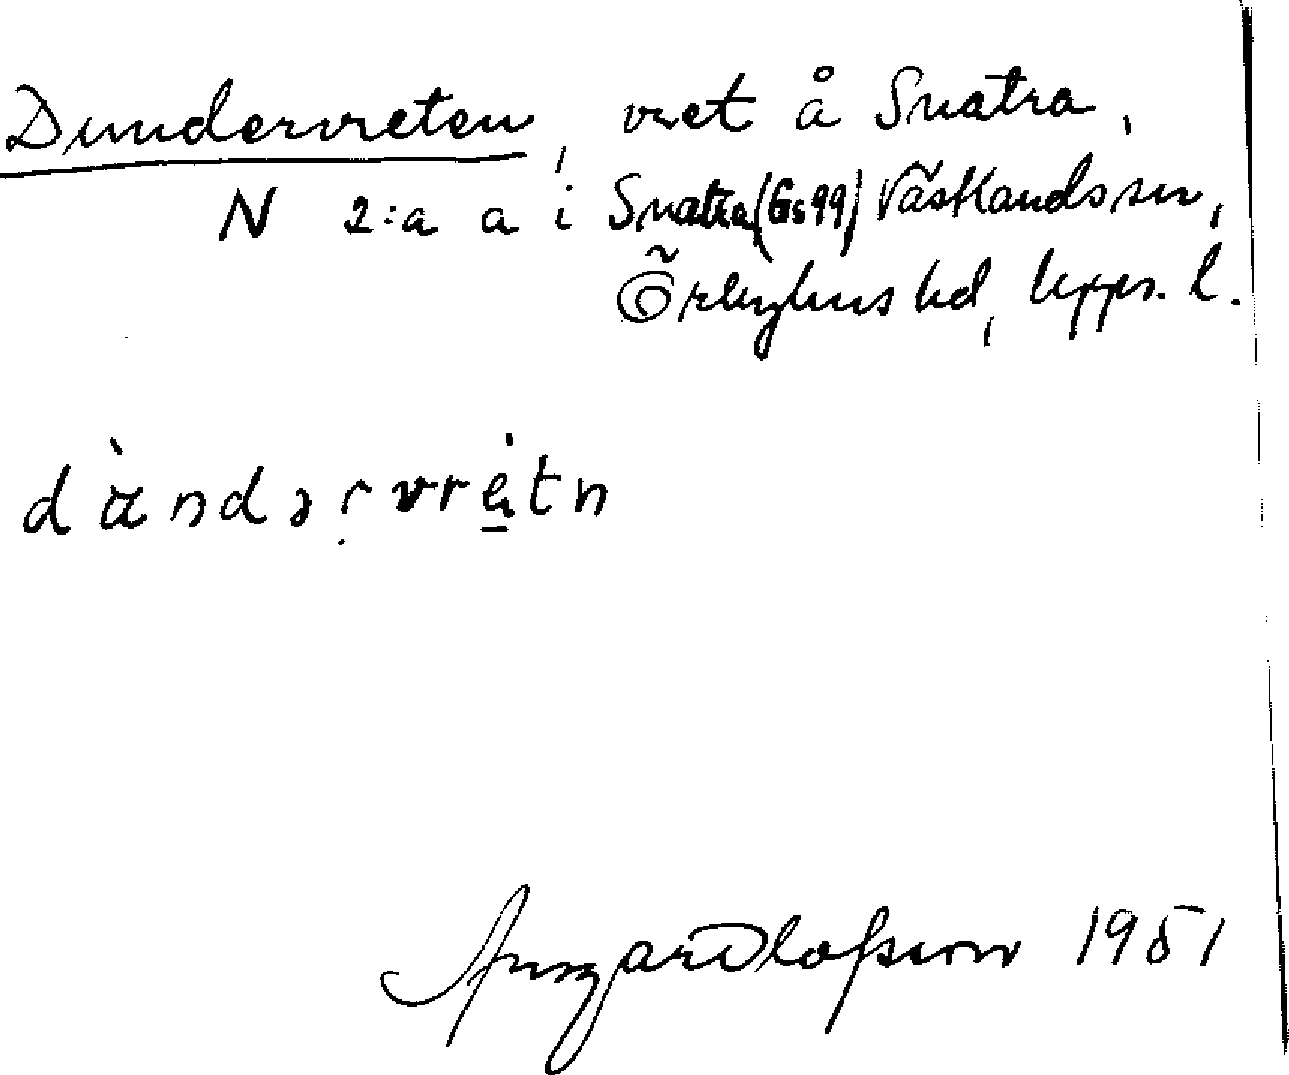 Dundervreten, vret å Snatra,
N 2:a a i Snatra (Gs 99) Västlands sn,
Örbyhus hd, Upps. l.
dὰndər vrètn
Ansgar Olofsson 1951